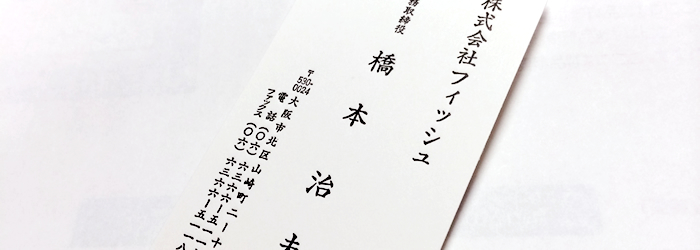 株式会社フィッシュ
務取締役
橋本治
〒530-0024
大阪市北区山崎町二ー
電話(〇六)六三六六ー五一
ファックス(〇六)六三六六ー五一